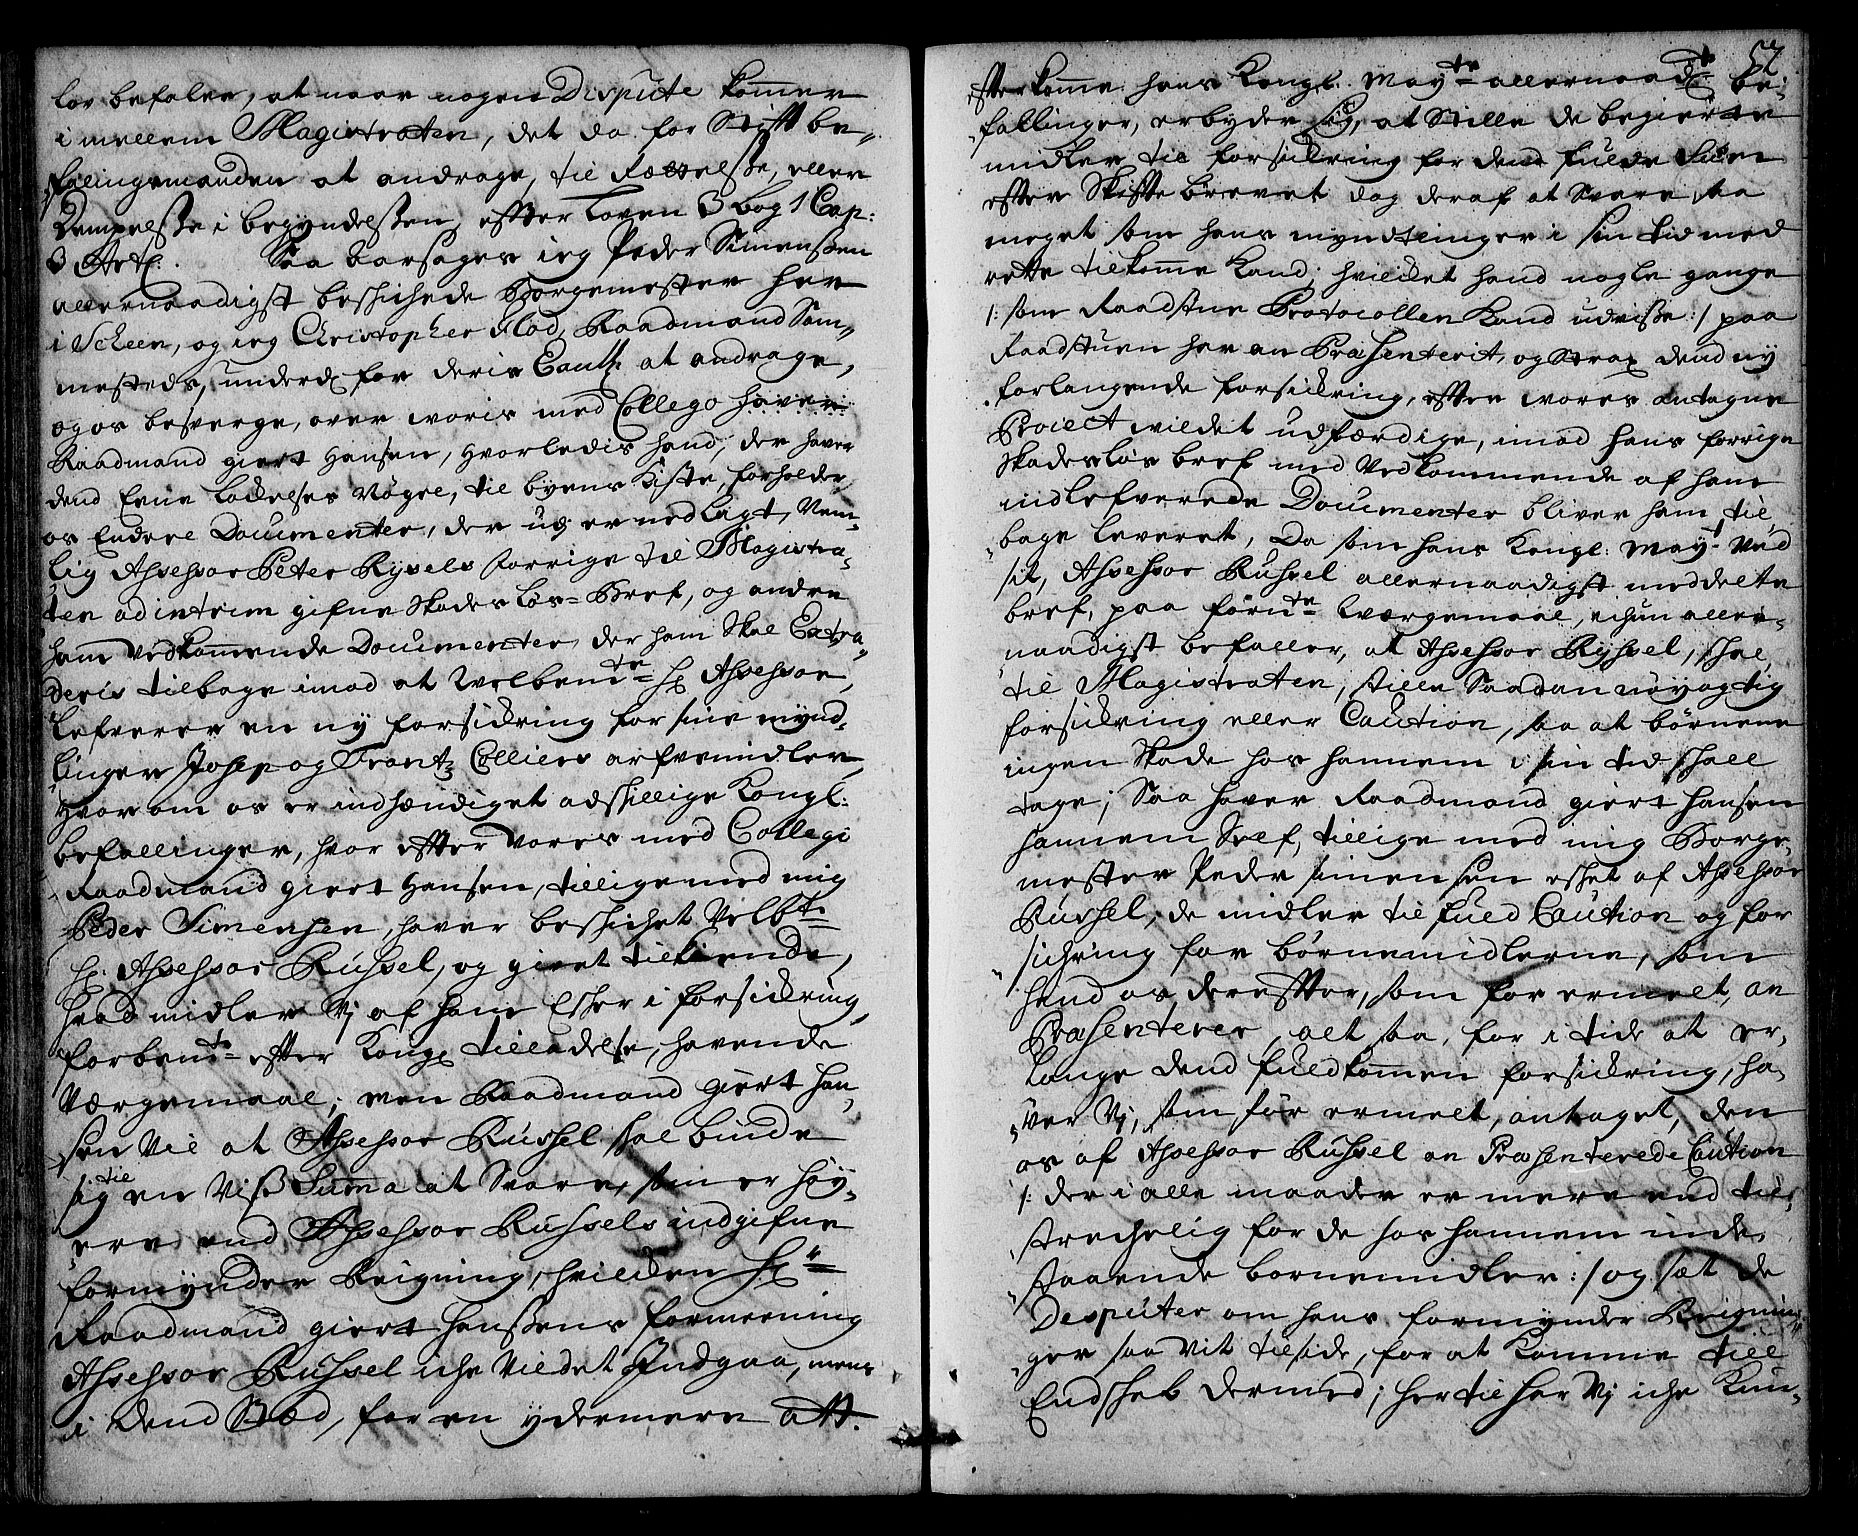 lov befaler, at naar nogen Dispute kom̄er
imellem Magistraten, det da for Stifft be-
falingsmanden at andrage, til Rættelse, eller
Dempelsse i begyndelssen, effter Loven 3 bog 1 Cap:
3 Art. Saa foraarsages ieg Peder Simenssen
allernaadigst beschichede Borgemester her
i Scheen, og ieg Christopher Flod, Raadmand Sam-
mesteds, underd for deris Excell: at andrage,
og os besverge, over woris med Collega
Raadmand giert Hansen, Hvorledis hand, der haver
dend Eene Lochelses Nøgel, til byens Kiste, forholder
os Endeel Documenter, der udj er nedlagt, Nem-
lig Assessor Peter Rysels forrige til Magistra-
ten ad intrim gifne Skadesløs-Bref, og andre
ham vedkom̄ende Documenter, der ham Skal Extra-
deris tilbage imod at Welbemte Hr Assessor,
Lefverer en ny forsickring for sine mynd-
linger Josep og Frantz Colliers arfvemidler,
Hvorom os er indhændiget adskillige Kongl:
befallinger, hvor effter Vores med Collegi
Raadmand giert Hansen, tillige med mig
Peder Simensen, haver beschichet Velbte
Hr. Assessor Russel, og givet tilkiende,
Hvad midler Vj af ham Esker i forsickring,
forbemte effter Kongl tilladelse, havende
Værgemaal; men Raadmand giert Han-
sen Vil at Assessor Russel skal binde
sig til en Viss Summa at Svare, som er Høy-
ere end Assessor Russels indgifne
formynder Reigning, hvilcken Hr
Raadmand giert Hanssens formeening
Assessor Russel iche Vildet Indgaa, mens
i dend Sted, for en ydermere att
52.
effterkom̄e hans Kongl. Mayts allernaadte be-
fallinger, erbyder sig, at Stille de begierte
midler til forsickring for dend fulde Sum
effter Skiftebrevet dog deraf at Svare saa
meget som hans myndlinger i sin tid med
rette tilkom̄e Kand; hvilcket hand nogle gange
/: som Raadstue Protocollen Kand udvisse :/ paa
Raadstuen har an Præsenterit, og Strax dend ny
forlangende forsickring, effter wores antagne
Proiect vildet udfærdige, imod hans forrige
Skadesløs bref med Vedkommende af ham
indlefverede Documenter bliver ham til
bage leveret, Da som hans Kongl: Mayt Ved
sit, Assessor Russel allernaadigst meddelte
bref, paa førnte Værgemaal, ichun aller-
naadigst befaller, at Assessor Ryssel, skal
til Magistraten, stille Saadan nøyagtig
forsickring eller Caution, saa at børnene
ingen Skade hos hannem i sin tid skall
tage; Saa haver Raadmand giert Hansen
hannem Self, tillige med mig Borge-
mester Peder Simensen esket af Assessor
Russel, de midler til fuld Caution og for
sickring for børnemidlerne, som
hand os dereffter, som for ermelt, an
Præsenterer, alt saa, for i tide at er-
lange dend fuldkommen forsickring, ha-
ver Vj, som før ermelt, antaget, den
os af Assessor Russel an Præsenterede Caution
/: der i alle maader er mere end til-
strechelig for de hos hannem inde-
staaende bornemidler :/ og sæt de
Desputer om hans formynder Reignin-
ger saa vit tilside, for at Komme till
Endskab dermed; hertil har Vj iche Kun-